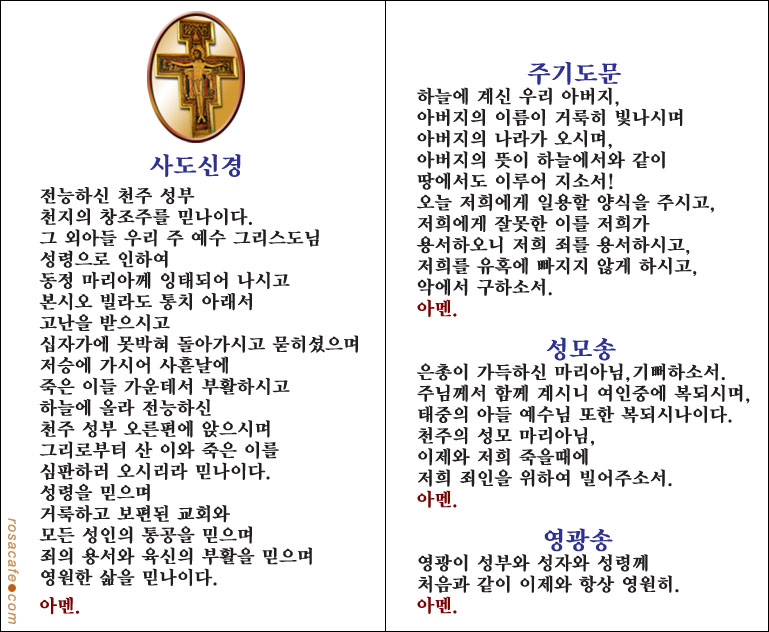 사도신경
전능하신 천주 성부
천지의 창조주를 믿나이다.
그 외아들 우리 주 예수 그리스도님
성령으로 인하여
동정 마리아께 잉태되어 나시고
본시오 빌라도 통치 아래서
고난을 받으시고
십자가에 못박혀 돌아가시고 묻히셨으며
저승에 가시어 사흗날에
죽은 이들 가운데서 부활하시고
하늘에 올라 전능하신
천주 성부 오른편에 앉으시며
그리로부터 산 이와 죽은 이를
심판하러 오시리라 믿나이다.
성령을 믿으며
거룩하고 보편된 교회와
모든 성인의 통공을 믿으며
죄의 용서와 육신의 부활을 믿으며
영원한 삶을 믿나이다.
아멘.
rosacafe●com
주기도문
하늘에 계신 우리 아버지,
아버지의 이름이 거룩히 빛나시며
아버지의 나라가 오시며,
아버지의 뜻이 하늘에서와 같이
땅에서도 이루어 지소서!
오늘 저희에게 일용할 양식을 주시고,
저희에게 잘못한 이를 저희가
용서하오니 저희 죄를 용서하시고,
저희를 유혹에 빠지지 않게 하시고,
악에서 구하소서.
아멘.
성모송
은총이 가득하신 마리아님,기뻐하소서.
주님께서 함께 계시니 여인중에 복되시며,
태중의 아들 예수님 또한 복되시나이다.
천주의 성모 마리아님,
이제와 저희 죽을때에
저희 죄인을 위하여 빌어주소서.
아멘.
영광송
영광이 성부와 성자와 성령께
처음과 같이 이제와 항상 영원히.
아멘.